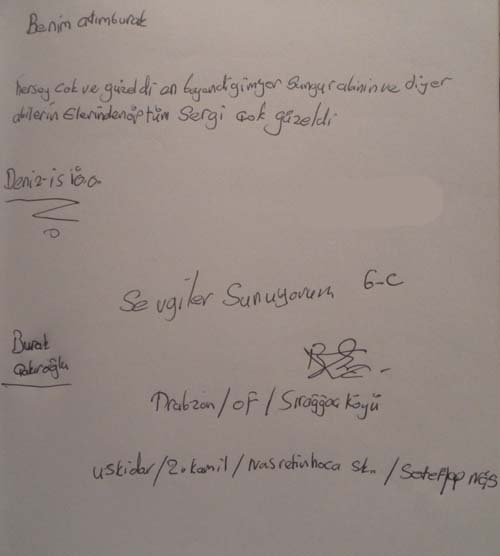 Benim adımburak
hersey cok ve güzeldi en beyendigimyer Sungur abinin ve diyer
abilerin Elerindenöptüm Sergi çok güzeldi
Deniz-is i.ö.o.
Sevgiler Sunuyorum 6-C
Burak
Çakıroğlu
Trabzon/OF/Sıraağaç Köyü
uskidar/Z.kamil/Nasretinhoca sk./